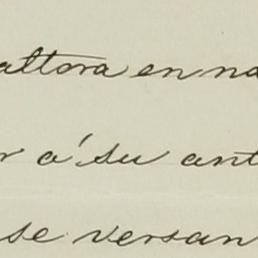 altora en na
r a' su ant
se versan